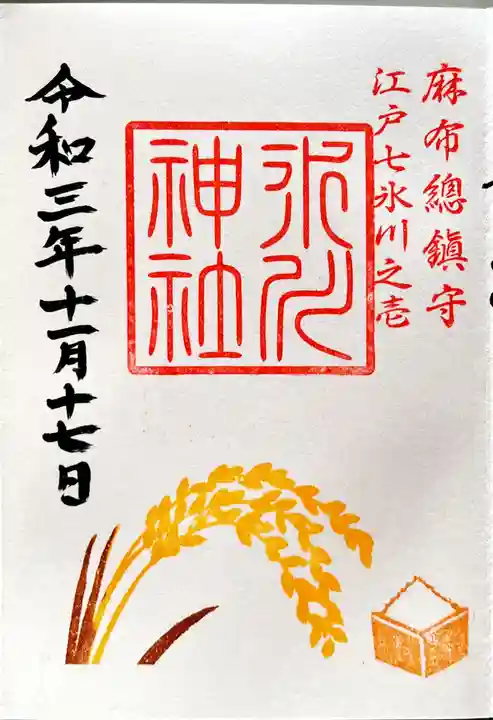 麻布總鎮守
江戸七氷川之壱
氷川
神社
令和三年十一月十七日